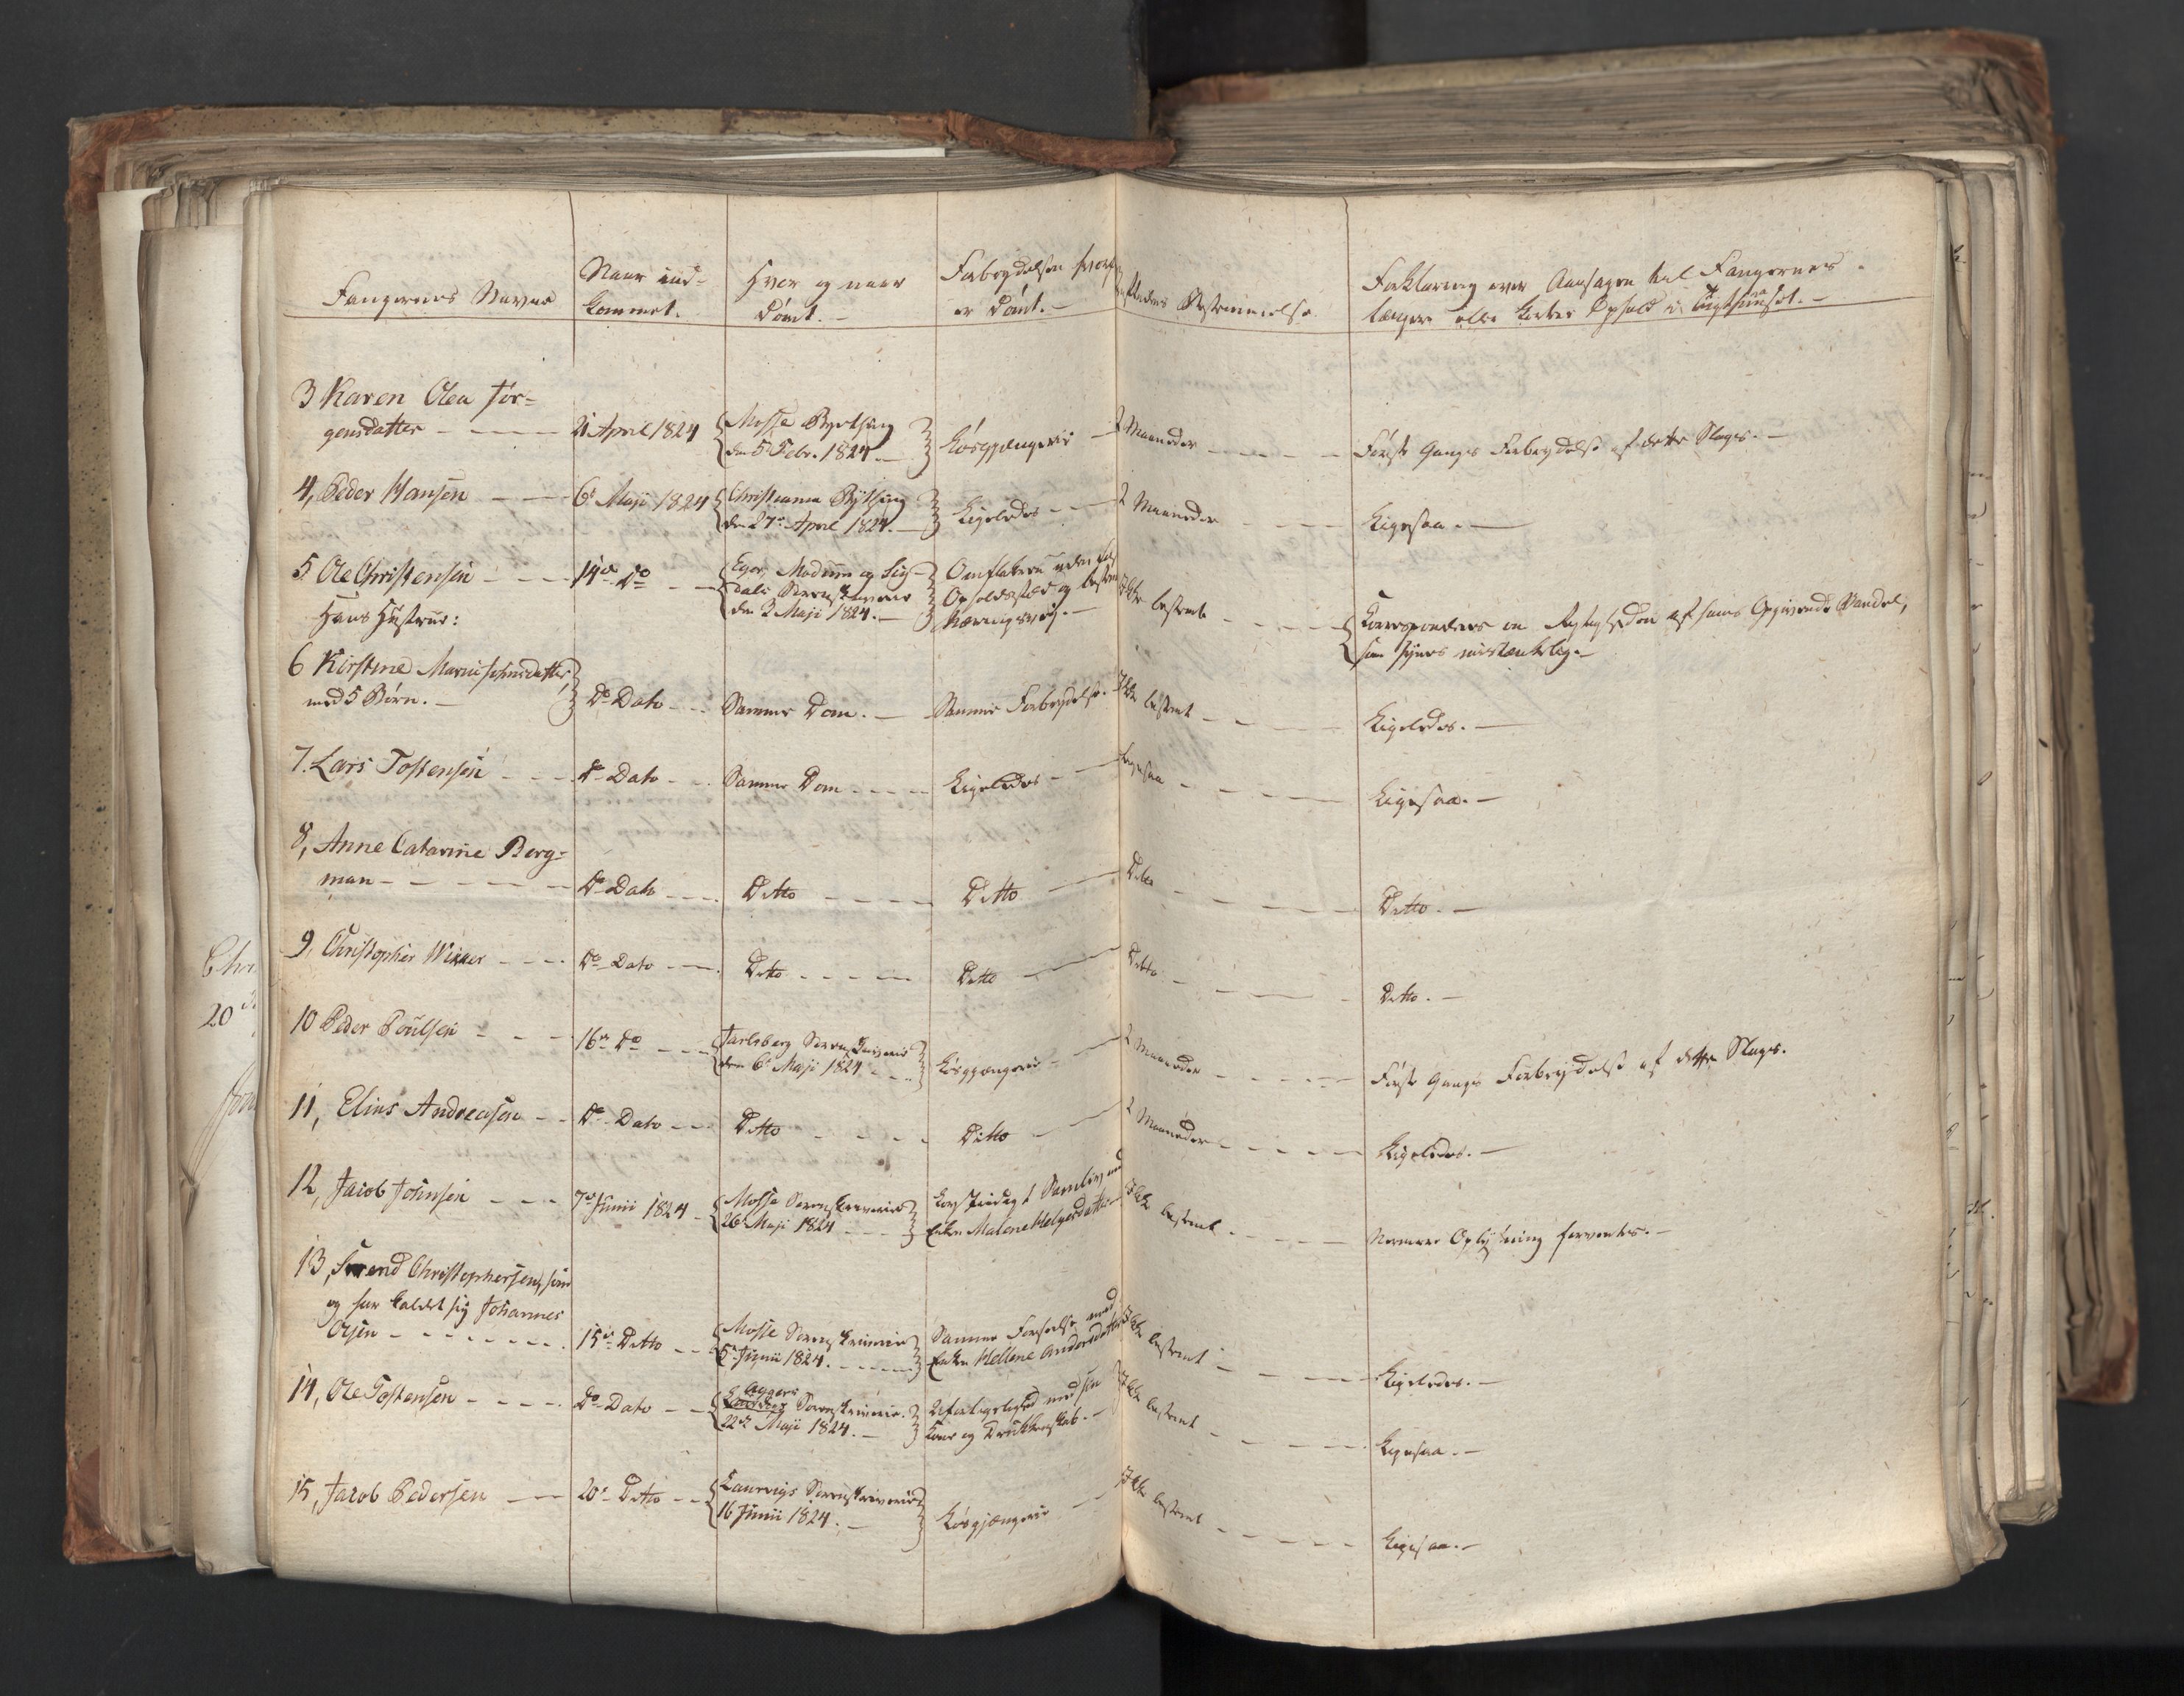 Fangernes Navne
Naar ind-
kommet.
Hvor og naar
dömt. -
Forbrydelsen hvorf
er dömt. -
Bestemmelse
Forklaring over Aarsagen til Fangernes
længere eller kortere Ophold i Tugthuuset. -
3 Karen Olea Jör-
gensdatter - - -
21 April 1824
Mosse Bything
den 5te Febr. 1824 -
Lösgjængerie -
2 Maaneder - - - -
Förste Gangs Forbrydelse af dette Slags. -
4, Peder Hansen - - -
6te Maji 1824
Christiania Bything
den 27de April 1824. -
Ligeledes - - -
2 Maaneder - - -
Ligesaa. -
5 Ole Christensen - - -
14de do - -
Eger, Modum og Sig-
dals Sorenskriverie
den 3 Maji 1824. -
Omflakken uden
Opholdssted og
Næringsvej. -
Ikke bestemt - - - -
Corresponderes om Rigtigheden af hans Opgivende Vandel,
som synes mistænkelig. -
Hans Hustrue:
6 Kirstine Marie Johnsdatter,
med 5 Börn. -
do Dato - -
Samme Dom. -
Samme Forbrydelse. -
Ikke bestemt - - -
Ligeledes. -
7. Lars Tostensen - - -
do Dato - -
Samme Dom - - - -
Ligeledes - -
Ligesaa - - - -
Ligesaa. -
8, Anne Catarine Berg-
man - - - - -
do Dato - - -
Ditto - - - -
Ditto -
Ditto - - - -
Ditto. -
9, Christopher Winner - - -
do Dato - -
Ditto - - - -
Ditto -
Ditto - - - -
Ditto. -
10 Peder Poulsen - - -
16de do - - -
Jarlsberg Sorenskriverie
den 6te Maji 1824 - - -
Lösgjængerie -
2 Maaneder - - - -
Förste Gangs Forbrydelse af dette Slags.
11, Elias Andreasen - -
do Dato - - -
Ditto - - - -
Ditto -
2 Maaneder - - - -
Ligeledes. -
12, Jacob Johnsen - - -
7de Junii 1824 -
Mosse Sorenskriverie
26de Maji 1824 - - -
Samliv med
Enken Malene Helgesdatter
Ikke bestemt - - - -
Nærmere Oplysning forventes. -
13, Svend Christophersen, som
og har kaldet sig Johannes
Olsen - - - - - -
15de Ditto - -
Mosse Sorenskriverie
5te Junii 1824. - - - -
Samme Forseelse med
Enken Hellene Andersdatter
Ikke bestemt - - - -
Ligeledes. -
14, Ole Tostensen - - - -
do Dato - -
Aggers
Sorenskriverie.
22de Maji 1824. -
Uforligelighed med sin
Kone og Drukkenskab. -
Ikke bestemt - - - -
Ligesaa. -
15, Jacob Pedersen - -
20de Ditto - -
Laurvigs Sorenskriverie
16 Junii 1824. -
Lösgjængerie -
Ikke bestemt - - - -
Ligesaa. -
20